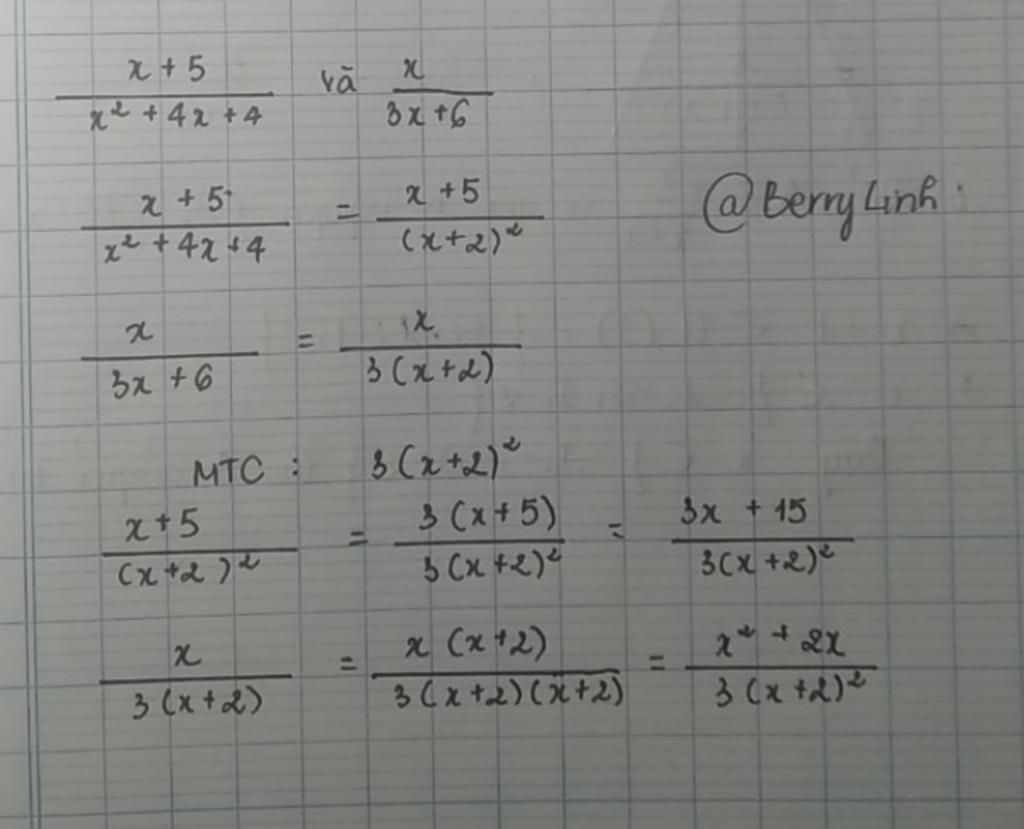 x + 5 / x² + 4x + 4 và x / 3x + 6
x + 5 / x² + 4x + 4 = x + 5 / (x + 2)² @BerryLinh
x / 3x + 6 = x / 3(x + 2)
MTC : 3(x + 2)²
x + 5 / (x + 2)² = 3(x + 5) / 3(x + 2)² = 3x + 15 / 3(x + 2)²
x / 3(x + 2) = x(x + 2) / 3(x + 2)(x + 2) = x² + 2x / 3(x + 2)²